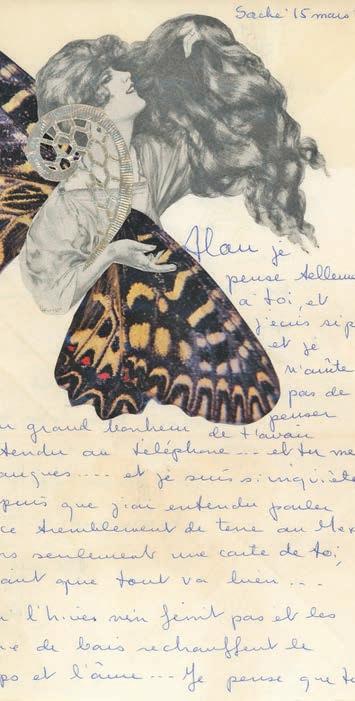 Saché 15 mars
Alan je
pense tellemen
à toi, et
j'écris si p
et je
n'arrête
pas de
penser
u grand bonheur de t'avoir
tendu au téléphone... et tu me
anques.... et je suis si inquiète
puis que j'ai entendu parler
ce tremblement de terre au Mex
rs seulement une carte de toi,
ant que tout va bien...
l'hiver n'en finit pas et les
de bois rechauffent le
ps et l'âme... Je pense que to